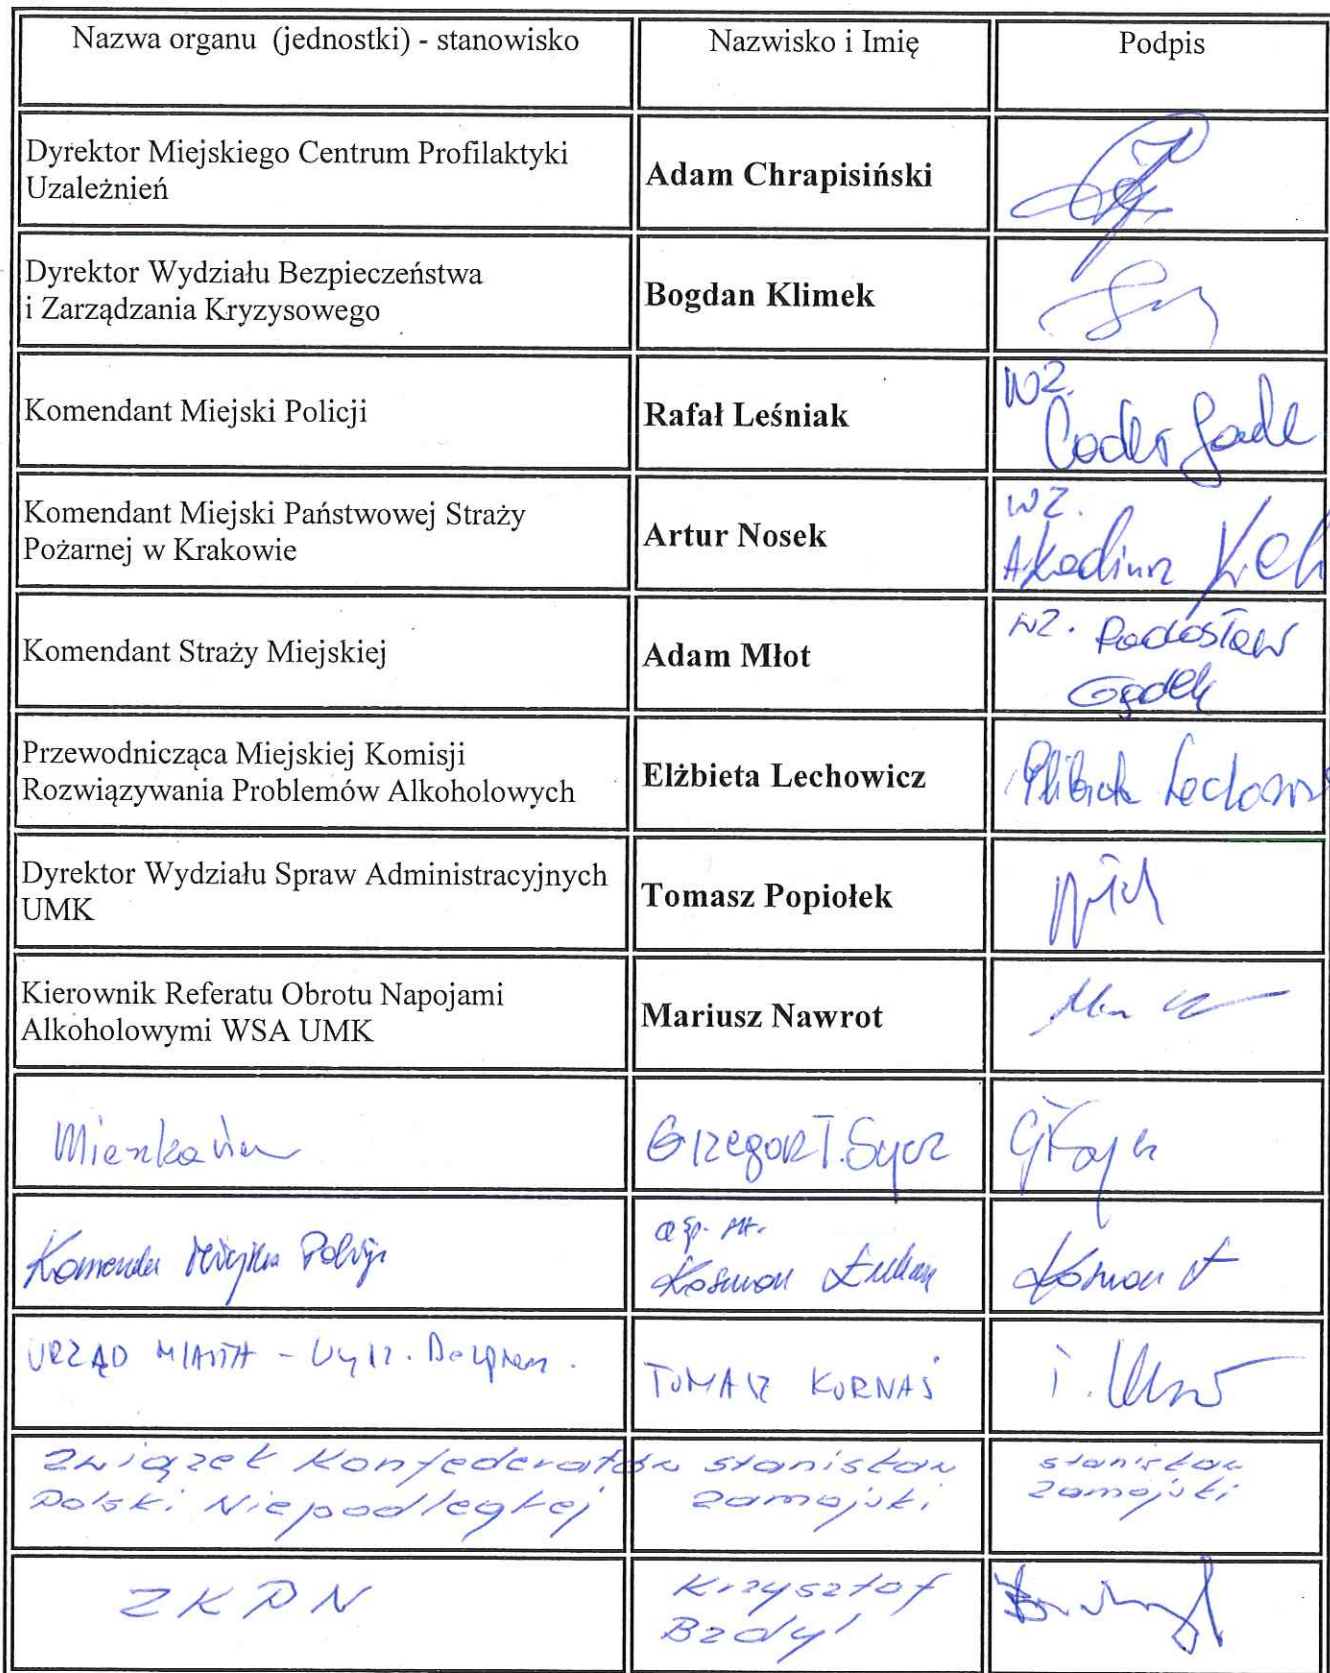 Nazwa organu (jednostki) - stanowisko
Nazwisko i Imię
Podpis
Dyrektor Miejskiego Centrum Profilaktyki
Uzależnień
Adam Chrapisiński
Dyrektor Wydziału Bezpieczeństwa
i Zarządzania Kryzysowego
Bogdan Klimek
Komendant Miejski Policji
Rafał Leśniak
WZ.
Komendant Miejski Państwowej Straży
Pożarnej w Krakowie
Artur Nosek
WZ.
Komendant Straży Miejskiej
Adam Młot
WZ. Radosław
Gądek
Przewodnicząca Miejskiej Komisji
Rozwiązywania Problemów Alkoholowych
Elżbieta Lechowicz
Dyrektor Wydziału Spraw Administracyjnych
UMK
Tomasz Popiołek
Kierownik Referatu Obrotu Napojami
Alkoholowymi WSA UMK
Mariusz Nawrot
Grzegorz T.
Komenda Miejska Policji
URZĄD MIASTA -
TOMASZ KORNAŚ
Związek Konfederatów
Polski Niepodległej
Stanisław
Zamojski
Stanisław
Zamojski
ZKPN
Krzysztof
Bzdyl